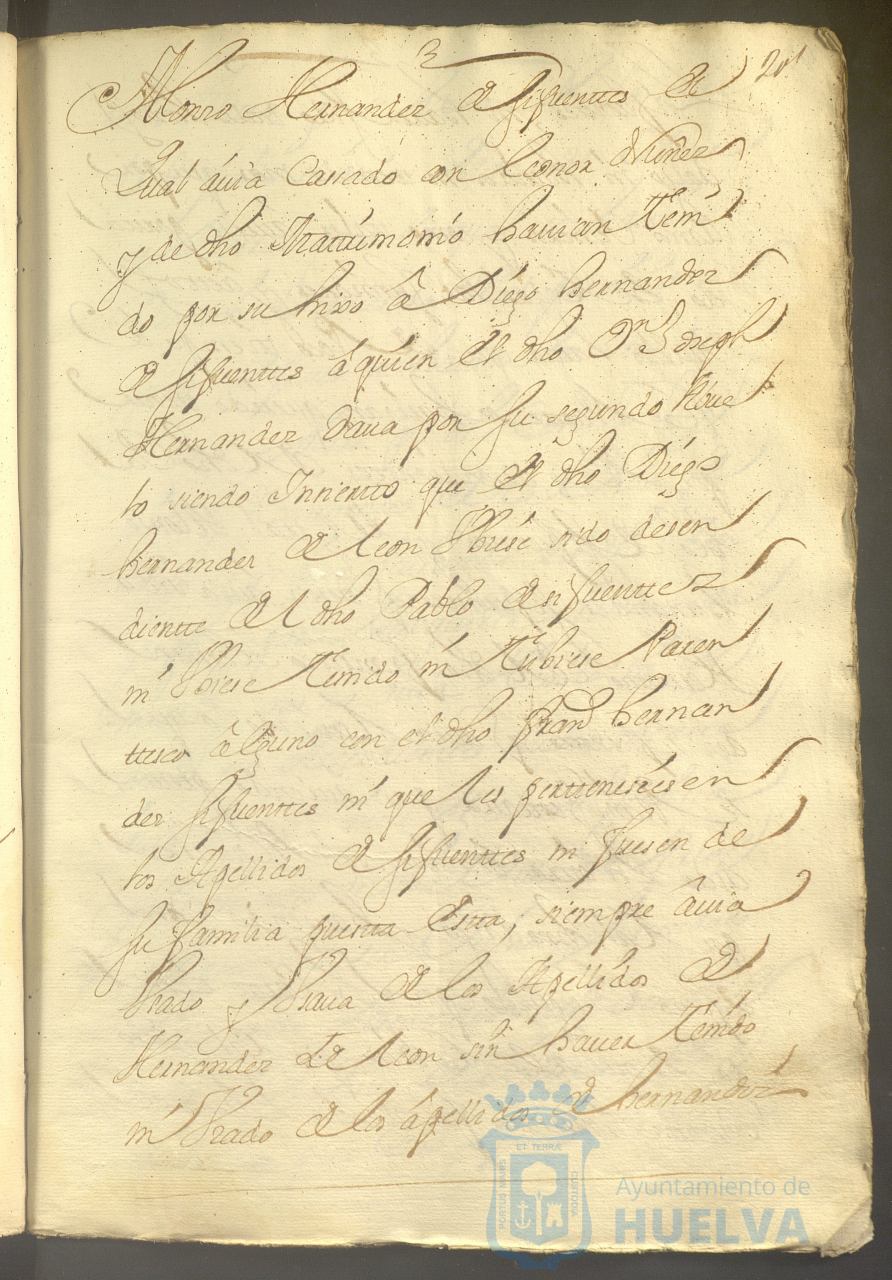 3
201
Alonso Hernandez de sifuenttes el
Qual auia Cassado con leonor Nuñez
y de dho Matrimonio hauian teni
do por su hixo â Diego hernandez
de sifuenttes â quien el dho Dn Joseph
Hernandez daua por su segundo Abue
lo siendo Innierto que el dho Diego
hernandez de leon Vbiese sido desen
diente del dho Pablo de sifuenttez
ni Vbiese tenido ni tubiese Paren
ttesco alguno con el dho Frando hernan
dez sifuenttes ni que les perttenesciesen
los Apellidos de sifuenttes ni fuesen de
su familia puesta Esta, siempre âuia
Vsado y Vsaua de los Apellidos de
Hernandez de leon sin hauer tenido
ni Vsado de los âpellidos de hernandez
PORTUS MARIS
ET TERRÆ
CUSTODIA
Ayuntamiento de
HUELVA